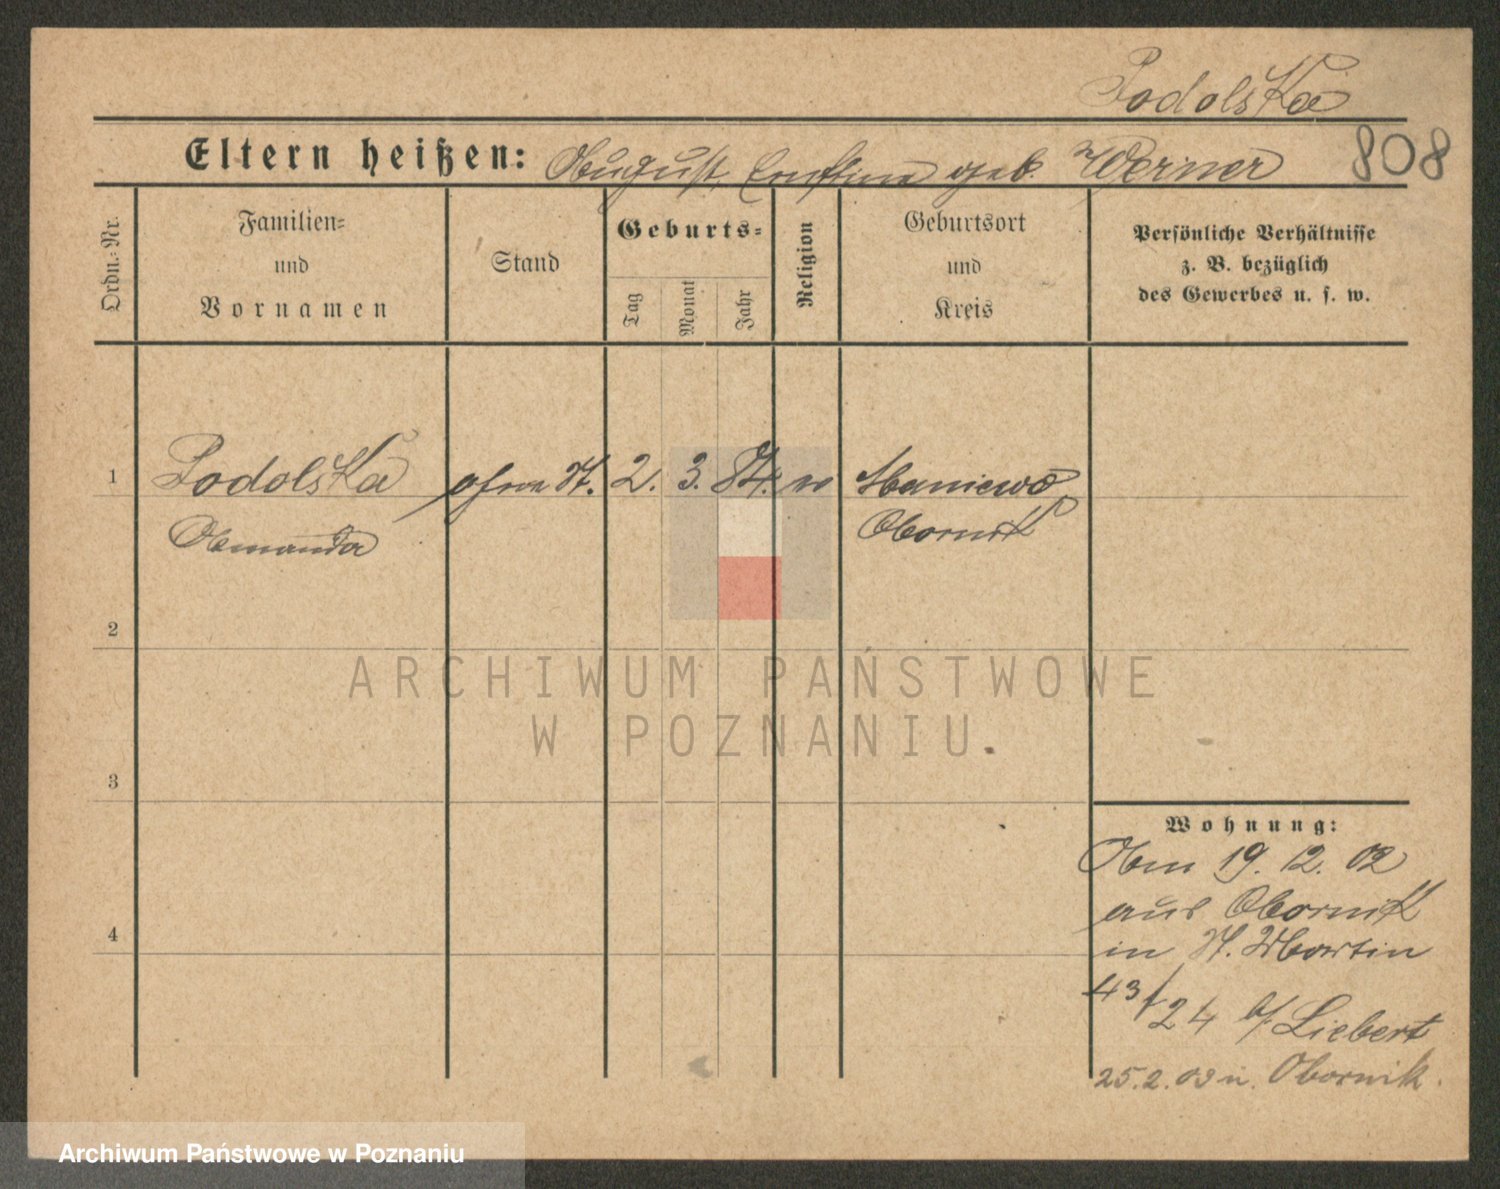 Podolska
Eltern heißen: August, Ernstine geb. Werner
808
Ordn.-Nr.
Familien-
und
Vornamen
Stand
Geburts-
Tag
Monat
Jahr
Religion
Geburtsort
und
Kreis
Persönliche Verhältnisse
z. B. bezüglich
des Gewerbes u. s. w.
1
Podolska
Amanda
ohne St.
2.
3.
84.
Maniewo
Obornik
2
3
4
ARCHIWUM PAŃSTWOWE
W POZNANIU
Wohnung:
Am 19. 12. 02
aus Obornik
in St. Martin
43/24 b/ Liebert
25.2.03 n. Obornik.
Archiwum Państwowe w Poznaniu